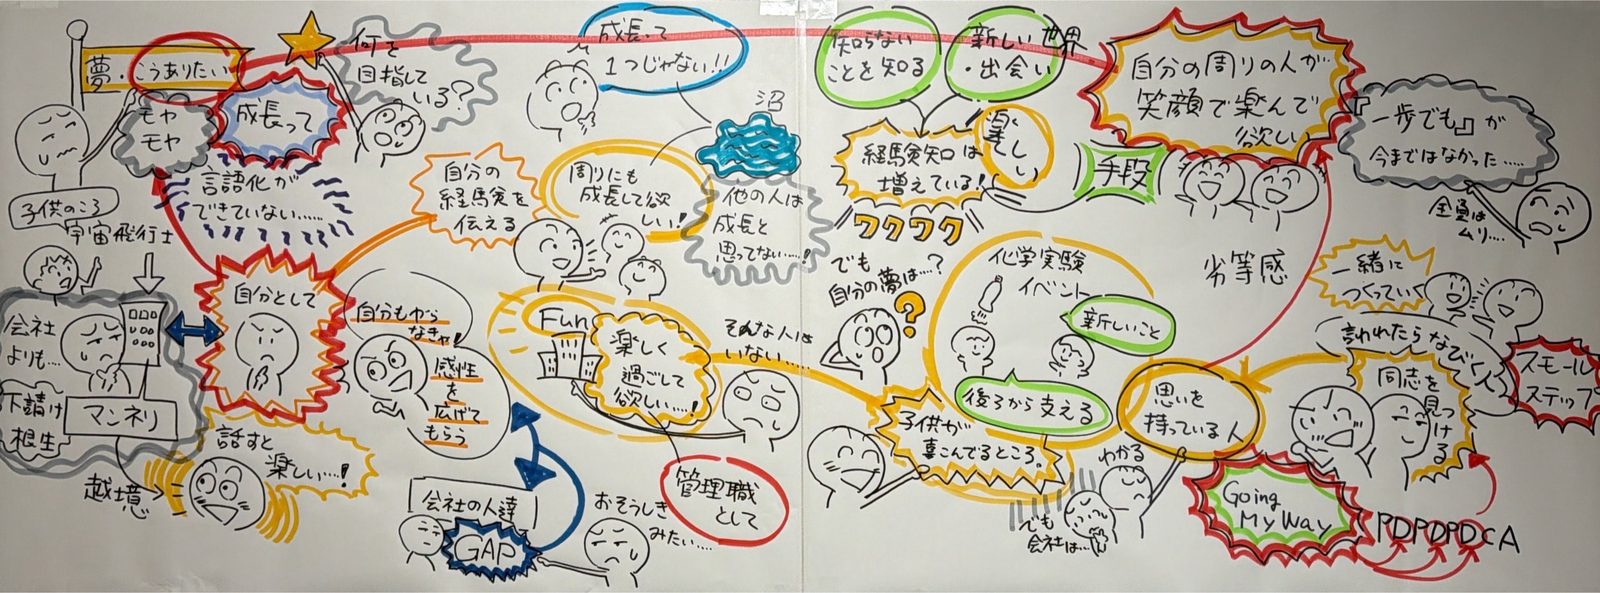 夢・こうありたい
モヤ
モヤ
成長って
言語化が
できていない……
子供のころ
宇宙飛行士
何を
目指して
いる?
成長って
1つじゃない!!
沼
自分の
経験を
伝える
周りにも
成長して欲
しい!
他の人は
成長と
思ってない……!
会社
よりも…
下請け
根生
マンネリ
越境
自分として
話すと
楽しい……!
自分もから
なきゃ!
感性
を
広げて
もらう
Fun
楽しく
過ごして
欲しい……!
そんな人は
いない……
会社の人達
GAP
おそうしき
みたい……
管理職
として
知らない
ことを知る
新しい世界
・出会い
経験知は
増えている!
楽しく
ワクワク
手段
自分の周りの人が
笑顔で楽んで
欲しい
『一歩でも』が
今まではなかった……
全員は
ムリ……
でも
自分の夢は…?
?
化学実験
イベント
新しいこと
後ろから支える
子供が
喜こんでるところ。
劣等感
思いを
持っている人
わかる
でも
会社は…
一緒に
つくっていく
言われたらなびく人
同志を
見つける
スモール
ステップ
Going
My Way
PDPDPDCA